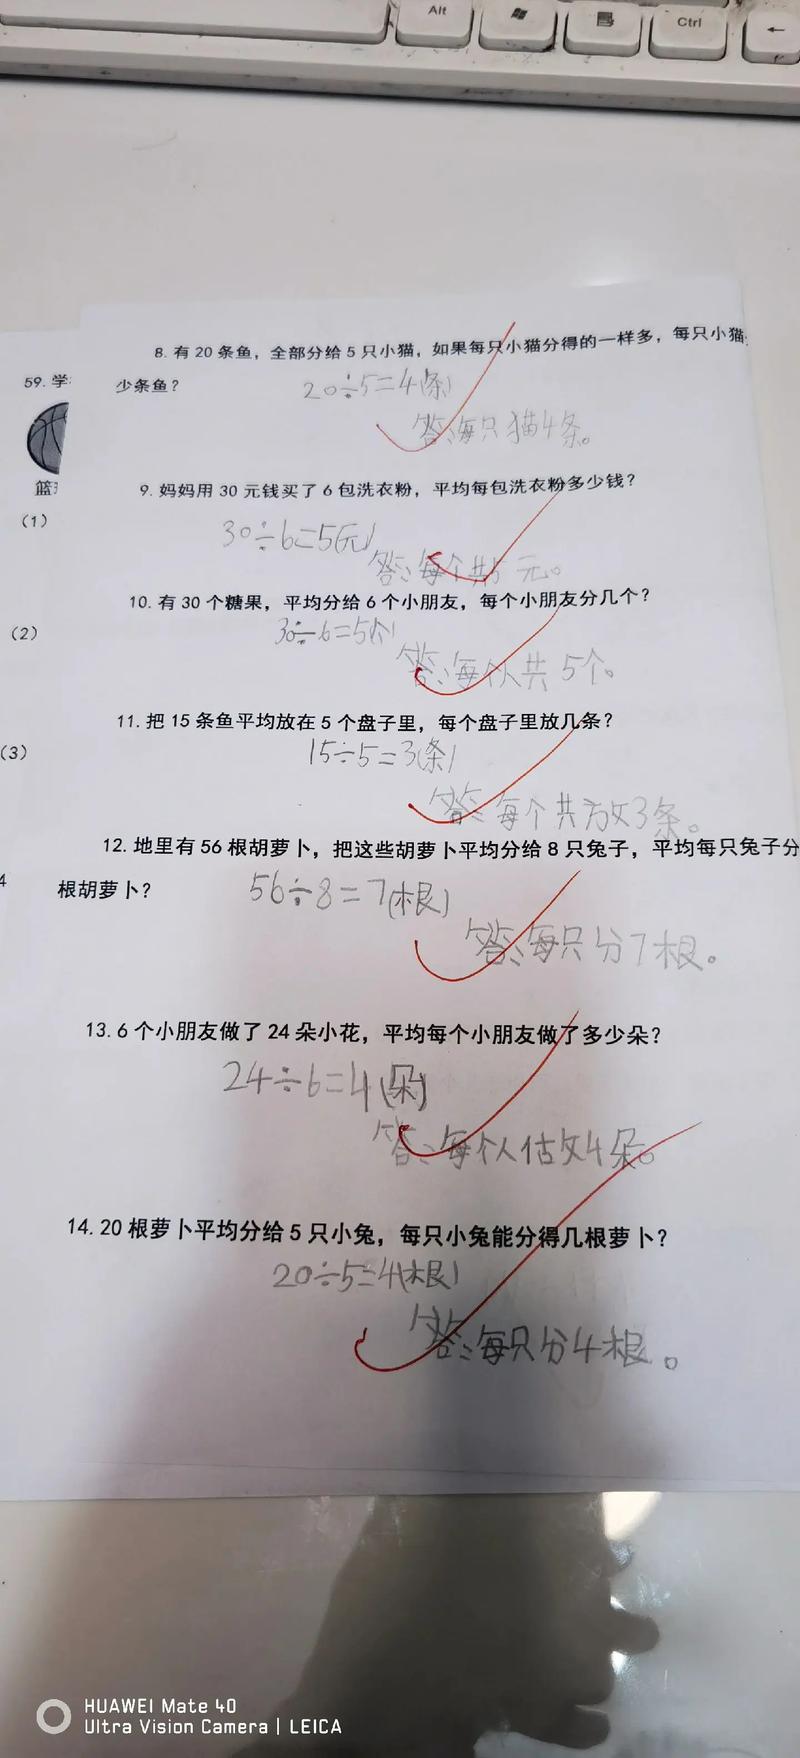 Alt
Ctrl
←
8. 有 20 条鱼，全部分给 5 只小猫，如果每只小猫分得的一样多，每只小猫
少条鱼？
20÷5=4(条)
答:每只猫4条。
59. 学
篮
9. 妈妈用 30 元钱买了 6 包洗衣粉，平均每包洗衣粉多少钱？
(1)
30÷6=5(元)
答:每个共5元。
10. 有 30 个糖果，平均分给 6 个小朋友，每个小朋友分几个？
(2)
30÷6=5(个)
答:每个人共 5个。
11. 把 15 条鱼平均放在 5 个盘子里，每个盘子里放几条？
(3)
15÷5=3(条)
答:每个共放3条。
12. 地里有 56 根胡萝卜，把这些胡萝卜平均分给 8 只兔子，平均每只兔子分
4
根胡萝卜？
56÷8=7(根)
答:每只分7根。
13. 6 个小朋友做了 24 朵小花，平均每个小朋友做了多少朵？
24÷6=4(朵)
答:每个人做4朵。
14. 20 根萝卜平均分给 5 只小兔，每只小兔能分得几根萝卜？
20÷5=4(根)
答:每只分4根。
HUAWEI Mate 40
Ultra Vision Camera | LEICA